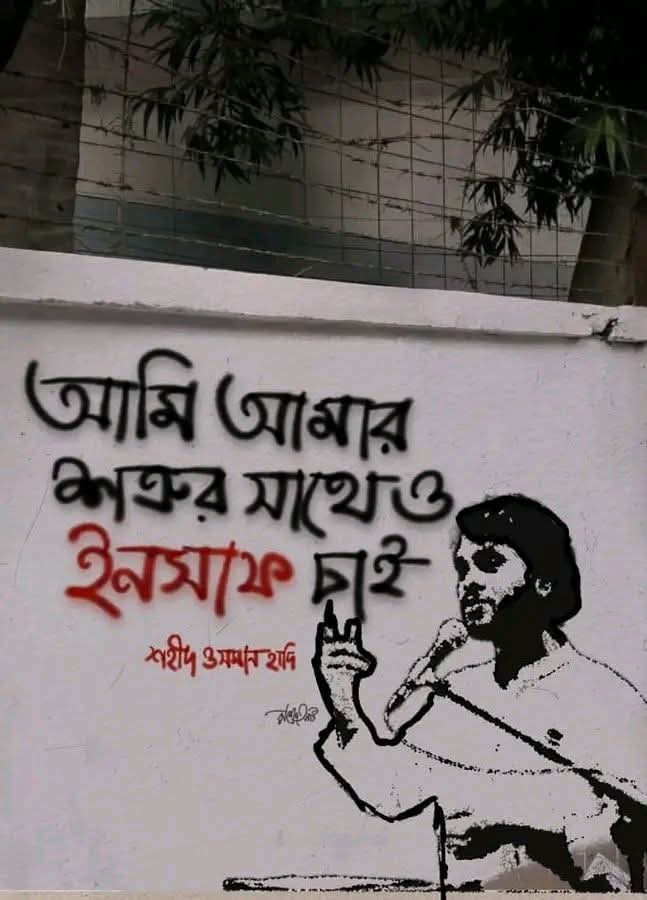 আমি আমার
শত্রুর সাথেও
ইনসাফ চাই
শহীদ ওসমান হাদি